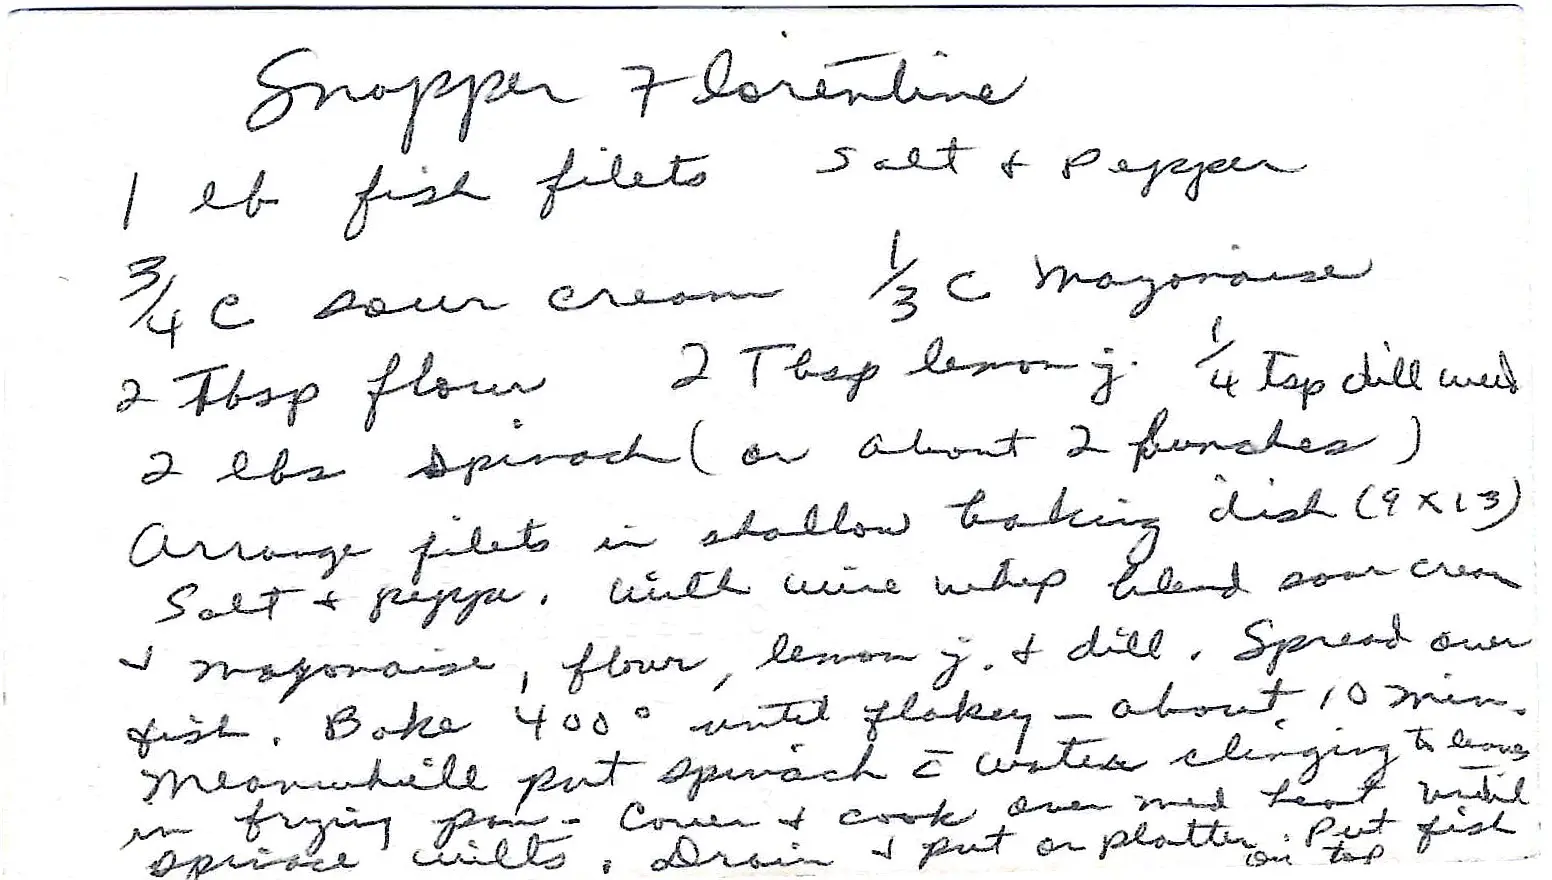 Snapper Florentine
1 lb fish filets Salt + Pepper
3/4 C sour cream 1/3 C Mayonaise
2 Tbsp flour 2 Tbsp lemon j. 1/4 tsp dill weed
2 lbs spinach (or about 2 bunches)
Arrange filets in shallow baking dish (9x13)
Salt + pepper. With wire whip blend sour cream
+ mayonaise, flour, lemon j. + dill. Spread over
fish. Bake 400° until flakey - about 10 min.
Meanwhile put spinach c̄ water clinging to leaves
in frying pan - Cover + cook over med heat until
spinace wilts. Drain + put on platter. Put fish
on top